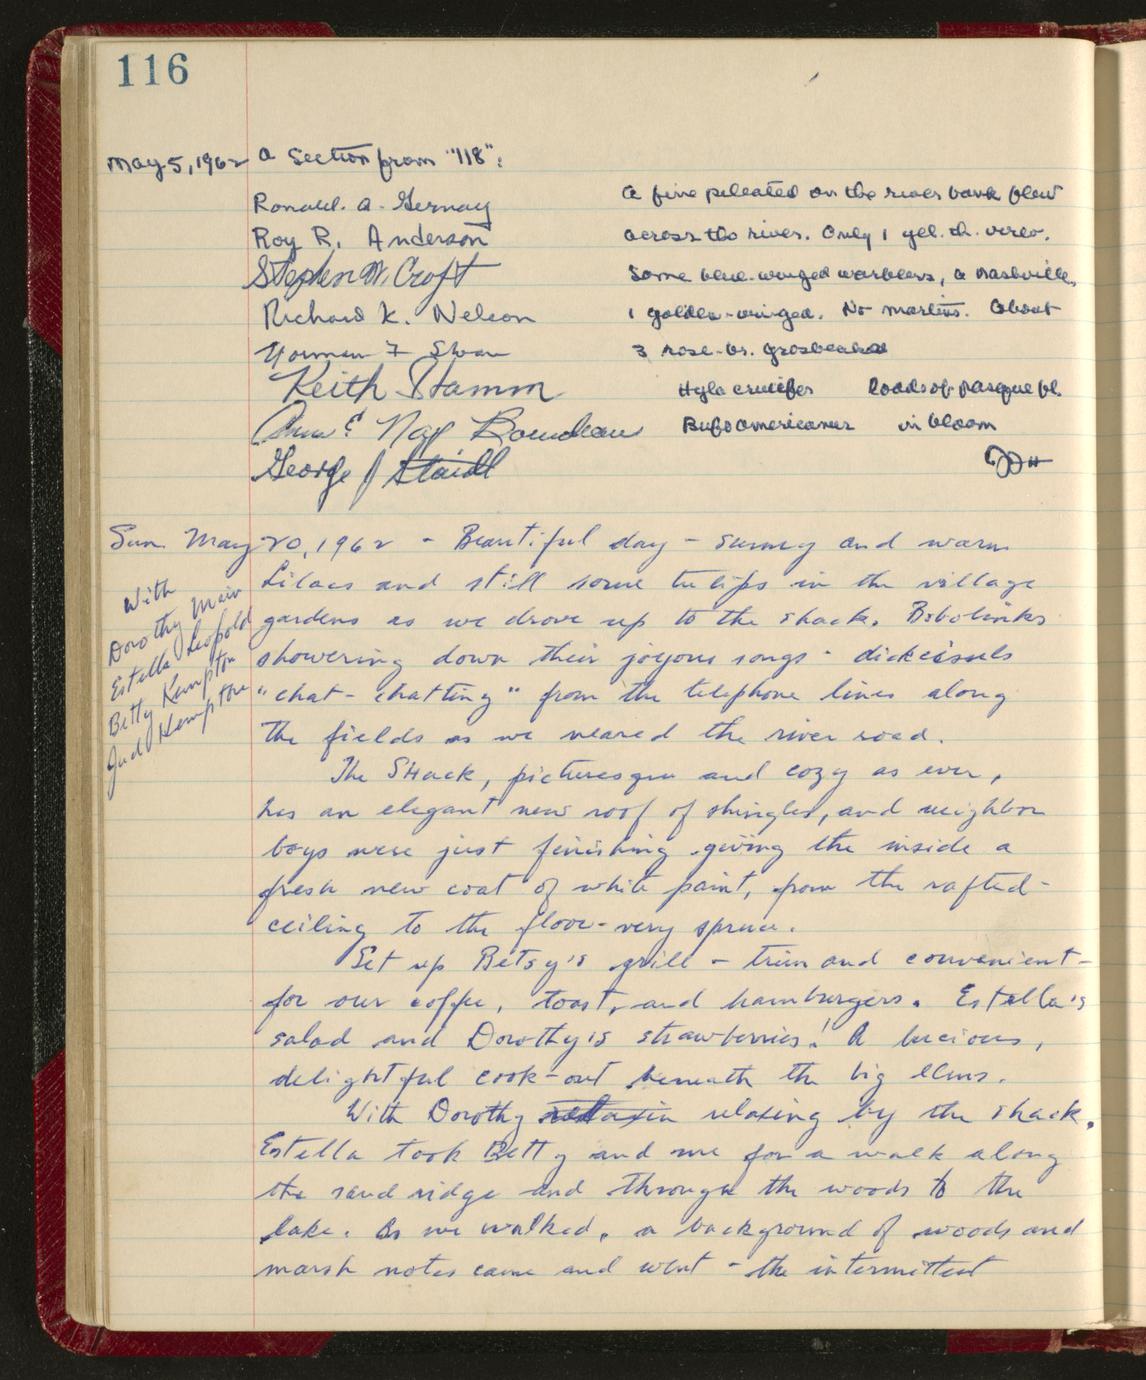 116
May 5, 1962 A Section from "118":
Ronald. A. Gernay
Roy R. Anderson
Stephen W. Croft
Richard K. Nelson
Norman F Sloan
Keith Stamm
Ann & Nap
George J Staidl
A fine pileated on the river bank flew
across the river. Only 1 yel. th. vireo.
Some blue-winged warblers, a nashville,
1 golden-winged. No martins. About
3 rose-br. grosbeaks
Hyla crucifer Loads of pasque fl.
Bufo americanus in bloom
JJH
Sun. May 20, 1962 - Beautiful day - sunny and warm
With
Dorothy Main
Estella Leopold
Betty Kempton
Jud Kempton
Lilacs and still some tulips in the village
gardens as we drove up to the shack. Bobolinks
showering down their joyous songs - dickcissels
"chat-chatting" from the telephone lines along
the fields as we neared the river road.
The Shack, picturesque and cozy as ever,
has an elegant new roof of shingles, and neighbor
boys were just finishing giving the inside a
fresh new coat of white paint, from the rafted-
ceiling to the floor - very spruce.
Set up Betsy's grill - trim and convenient -
for our coffee, toast, and hamburgers. Estella's
salad and Dorothy's strawberries! A lucious,
delightful cook-out beneath the big elms.
With Dorothy relaxing by the shack,
Estella took Betty and me for a walk along
the sand ridge and through the woods to the
lake. As we walked, a background of woods and
marsh notes came and went - the intermittent